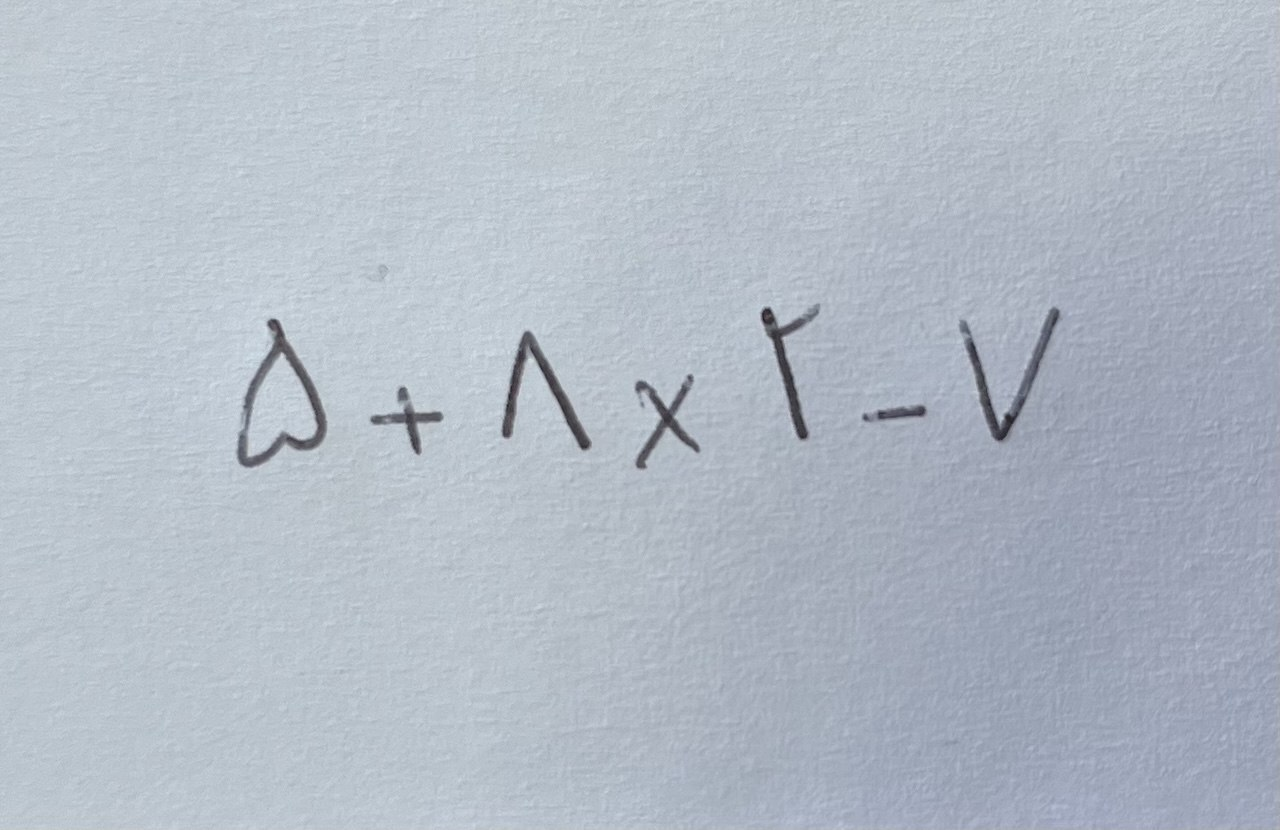 ۵ + ۸ × ۲ - ۷